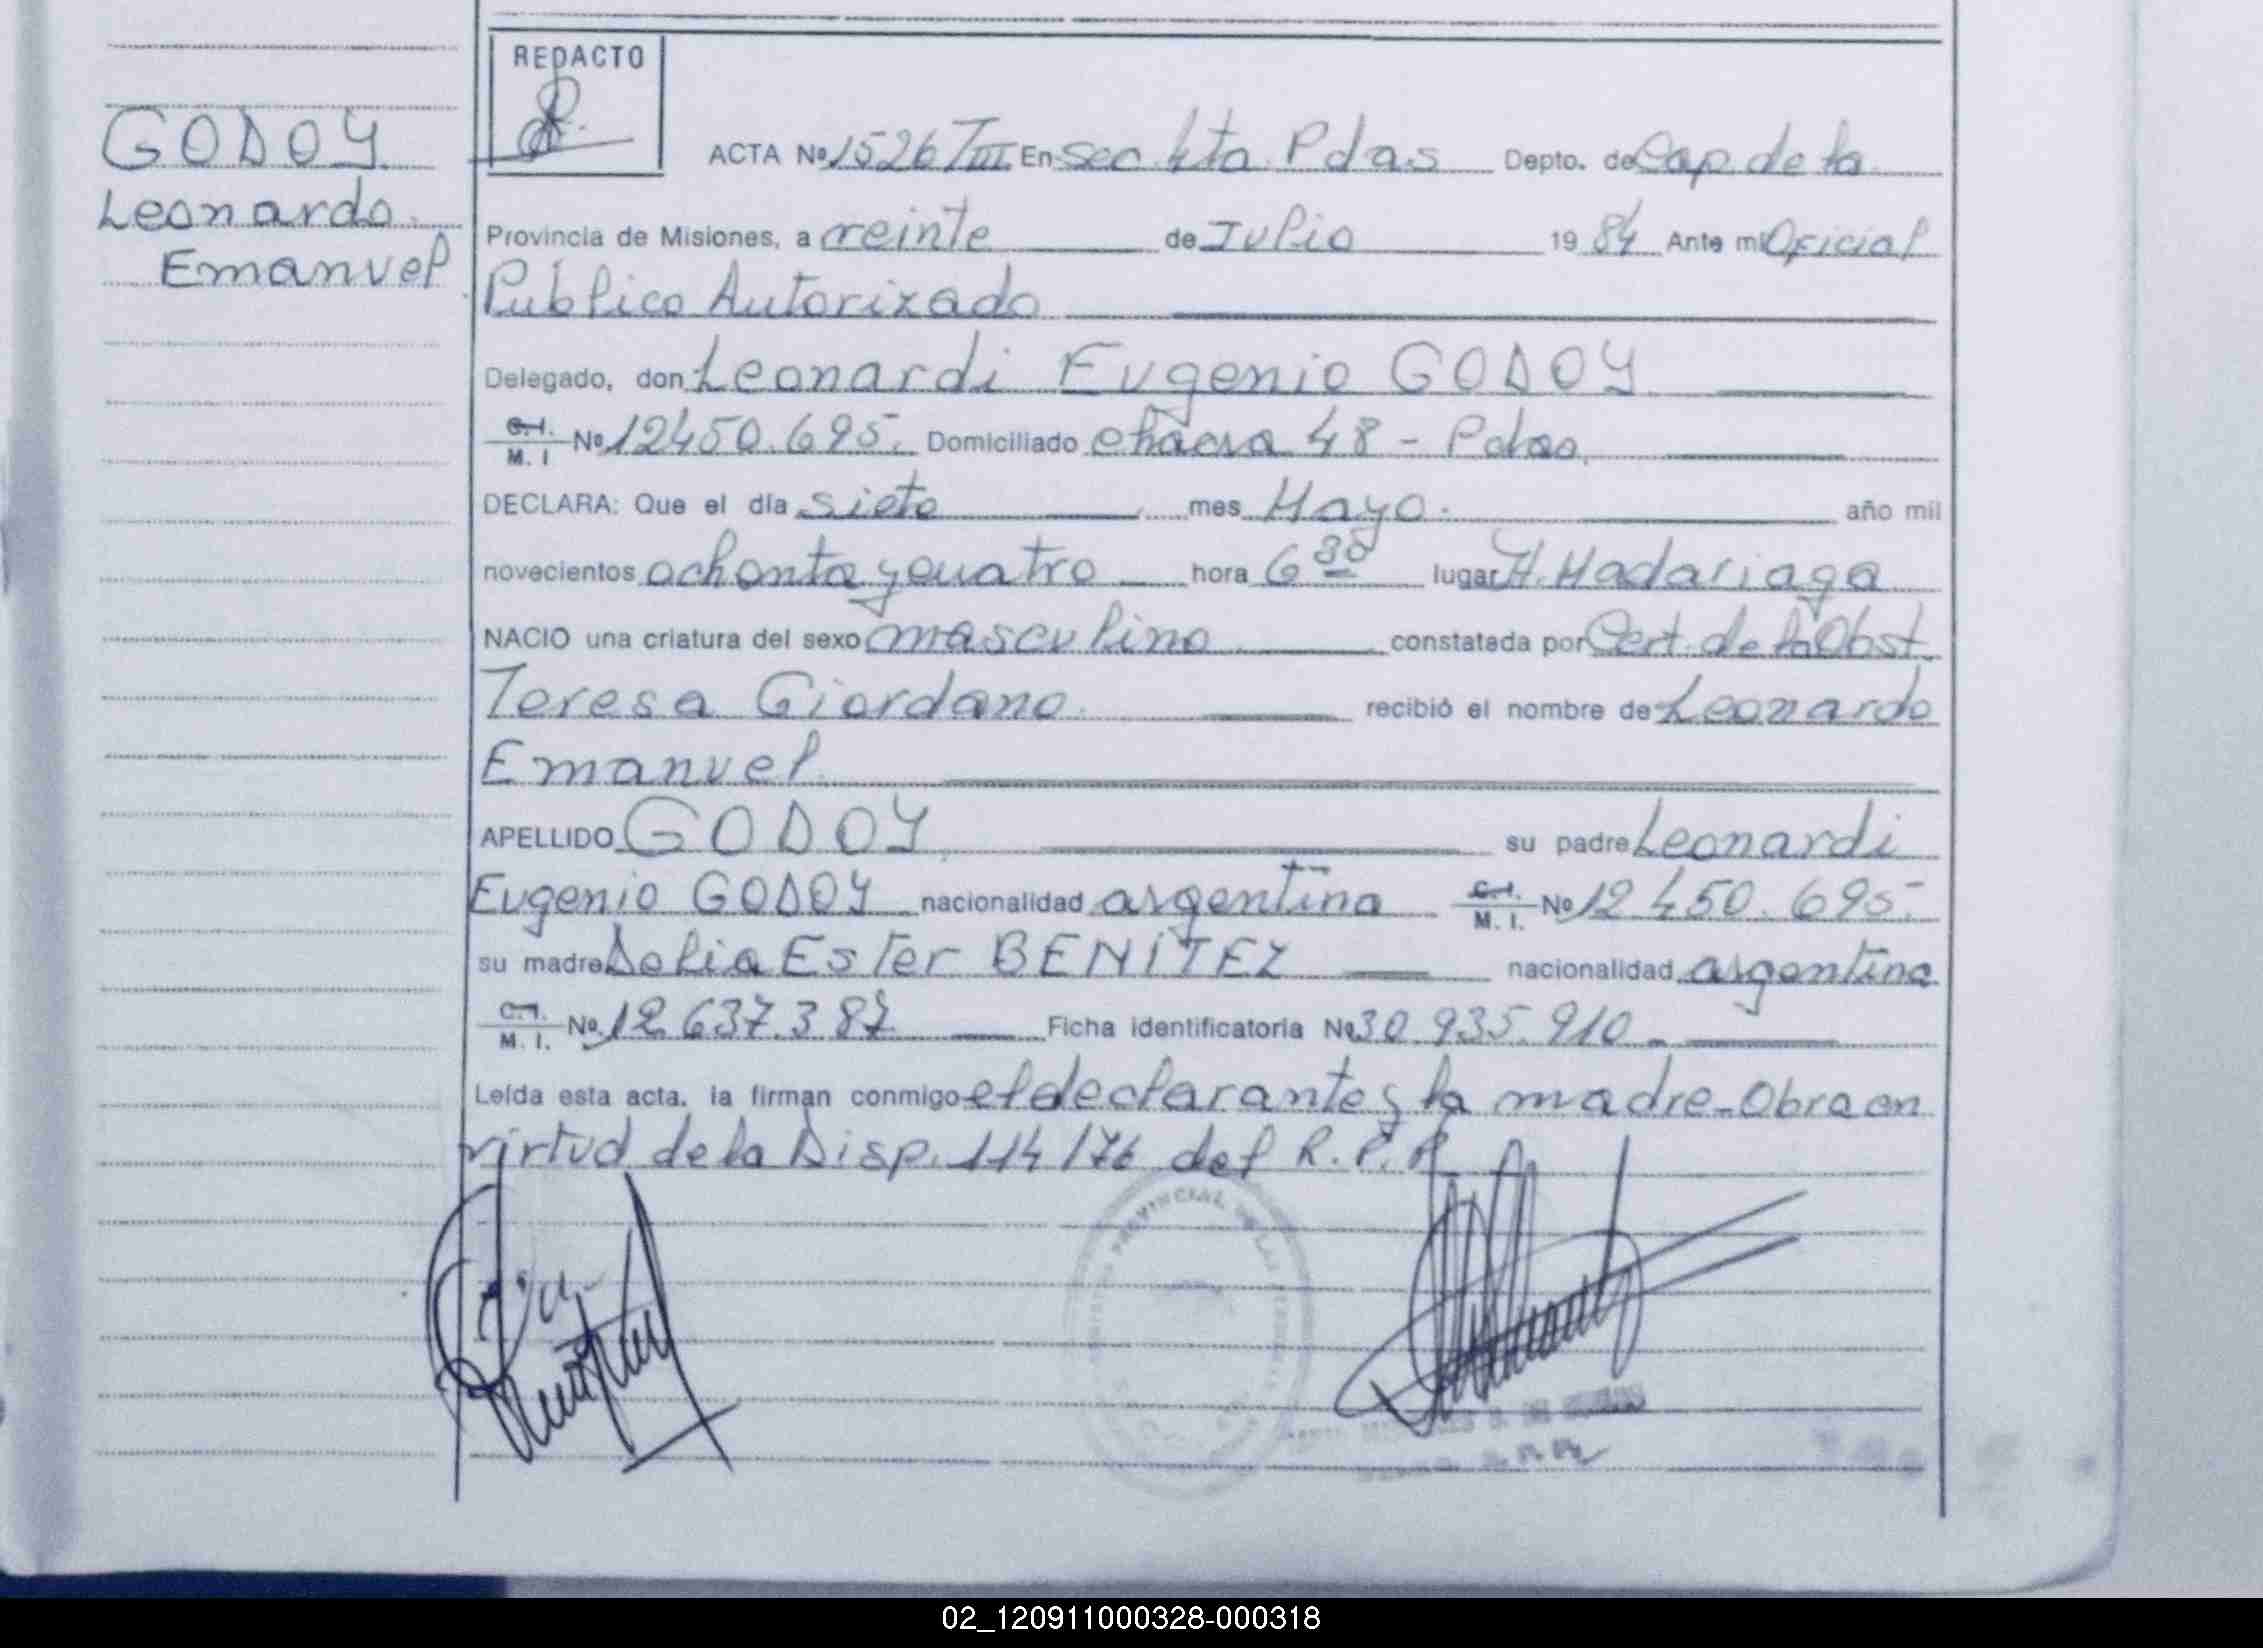 REDACTO
GODOY
Leonardo
Emanuel
ACTA Nº 1526 TIII En Sec 4ta Pdas Depto. de Cap. de la
Provincia de Misiones, a veinte de Julio 1984 Ante mi Oficial
Publico Autorizado
Delegado, don Leonardi Eugenio GODOY
C.I. M. I Nº 12450.695. Domiciliado chacra 48 - Pdas.
DECLARA: Que el día siete mes Mayo. año mil
novecientos ochenta y cuatro hora 6 30 lugar H. Madariaga
NACIO una criatura del sexo masculino constatada por Cert. de la Obst.
Teresa Giordano. recibió el nombre de Leonardo
Emanuel.
APELLIDO GODOY, su padre Leonardi
Eugenio GODOY nacionalidad argentina C.I. M. I. Nº 12.450.695.
su madre Delia Ester BENÍTEZ nacionalidad argentina
C.I. M. I. Nº 12.637.387 Ficha identificatoria Nº 30.935.910 -
Leída esta acta, la firman conmigo el declarante y la madre - Obra en
virtud de la Disp. 114/76 del R.P.P.
PROVINCIAL DE LAS
02_120911000328-000318